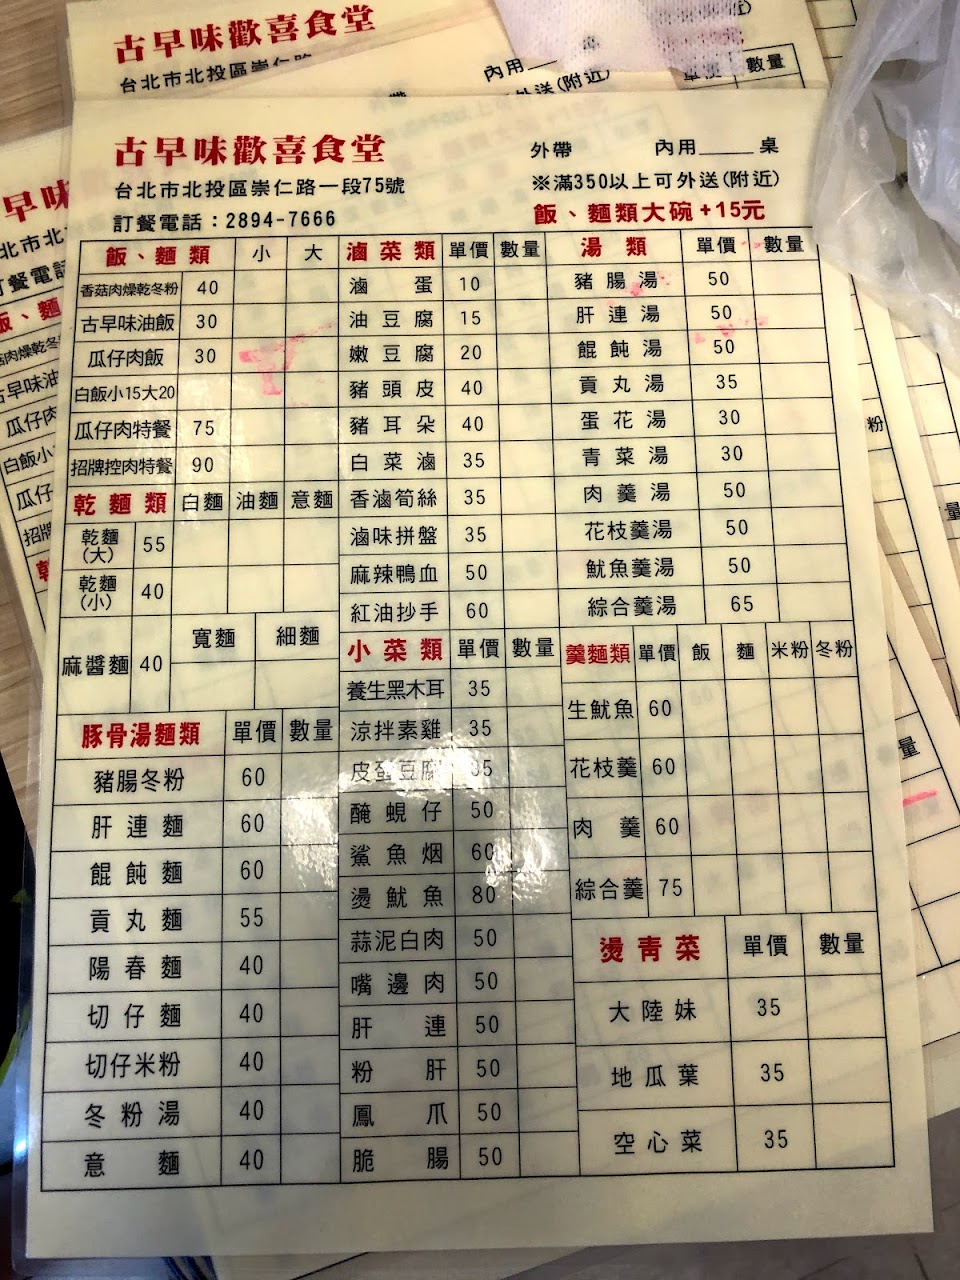 古早味歡喜食堂
台北市北投區崇仁路
內用
外送(附近)
數量
古早味歡喜食堂
台北市北投區崇仁路一段75號
訂餐電話：2894-7666
外帶 內用_____桌
※滿350以上可外送(附近)
飯、麵類大碗+15元
飯、麵類 小 大
香菇肉燥乾冬粉 40
古早味油飯 30
瓜仔肉飯 30
白飯小15大20
瓜仔肉特餐 75
招牌控肉特餐 90
乾麵類 白麵 油麵 意麵
乾麵(大) 55
乾麵(小) 40
麻醬麵 40 寬麵 細麵
豚骨湯麵類 單價 數量
豬腸冬粉 60
肝連麵 60
餛飩麵 60
貢丸麵 55
陽春麵 40
切仔麵 40
切仔米粉 40
冬粉湯 40
意麵 40
滷菜類 單價 數量
滷蛋 10
油豆腐 15
嫩豆腐 20
豬頭皮 40
豬耳朵 40
白菜滷 35
香滷筍絲 35
滷味拼盤 35
麻辣鴨血 50
紅油抄手 60
小菜類 單價 數量
養生黑木耳 35
涼拌素雞 35
皮蛋豆腐 35
醃蜆仔 50
鯊魚烟 60
燙魷魚 80
蒜泥白肉 50
嘴邊肉 50
肝連 50
粉肝 50
鳳爪 50
脆腸 50
湯類 單價 數量
豬腸湯 50
肝連湯 50
餛飩湯 50
貢丸湯 35
蛋花湯 30
青菜湯 30
肉羹湯 50
花枝羹湯 50
魷魚羹湯 50
綜合羹湯 65
羹麵類 單價 飯 麵 米粉 冬粉
生魷魚 60
花枝羹 60
肉羹 60
綜合羹 75
燙青菜 單價 數量
大陸妹 35
地瓜葉 35
空心菜 35